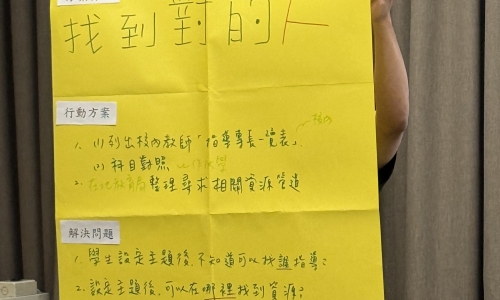 找到對的人
行動方案
1. (1) 列出校內教師「指導專長一覽表」 校內
(2) 科目對照
2. 在地教育局 整理尋求相關資源管道
解決問題
1. 學生設定主題後,不知道可以找誰指導?
2. 設定主題後,可以在哪裡找到資源?